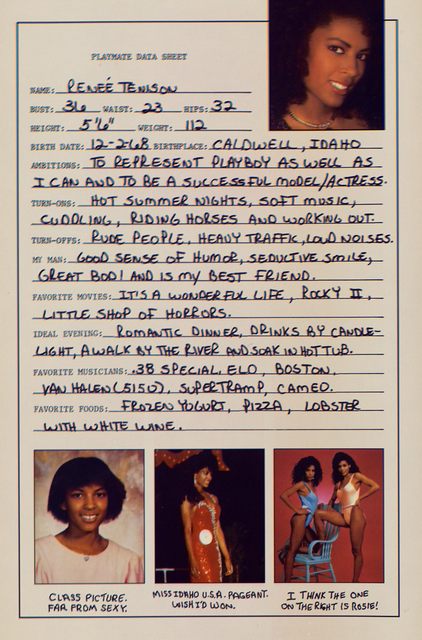 PLAYMATE DATA SHEET
NAME: RENEÉ TENISON
BUST: 36 WAIST: 23 HIPS: 32
HEIGHT: 5'6" WEIGHT: 112
BIRTH DATE: 12-2-68 BIRTHPLACE: CALDWELL, IDAHO
AMBITIONS: TO REPRESENT PLAYBOY AS WELL AS
I CAN AND TO BE A SUCCESSFUL MODEL/ACTRESS.
TURN-ONS: HOT SUMMER NIGHTS, SOFT MUSIC,
CUDDLING, RIDING HORSES AND WORKING OUT.
TURN-OFFS: RUDE PEOPLE, HEAVY TRAFFIC, LOUD NOISES.
MY MAN: GOOD SENSE OF HUMOR, SEDUCTIVE SMILE,
GREAT BOD! AND IS MY BEST FRIEND.
FAVORITE MOVIES: IT'S A WONDERFUL LIFE, ROCKY II,
LITTLE SHOP OF HORRORS.
IDEAL EVENING: ROMANTIC DINNER, DRINKS BY CANDLE-
LIGHT, A WALK BY THE RIVER AND SOAK IN HOT TUB.
FAVORITE MUSICIANS: .38 SPECIAL, ELO, BOSTON,
VAN HALEN (5150), SUPERTRAMP, CAMEO.
FAVORITE FOODS: FROZEN YOGURT, PIZZA, LOBSTER
WITH WHITE WINE.
CLASS PICTURE.
FAR FROM SEXY.
MISS IDAHO U.S.A. PAGEANT.
WISH I'D WON.
I THINK THE ONE
ON THE RIGHT IS ROSIE!